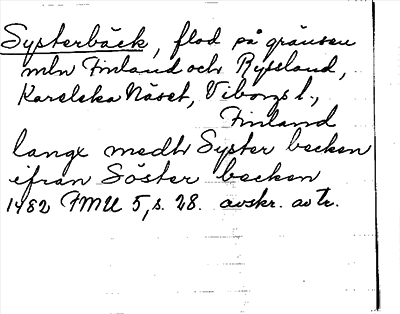 Systerbäck, flod på gränsen
mln Finland och Ryssland,
Karelska Näset, Viborgs l.,
Finland
langx medh Syster becken
ifran Söster becken
1482 FMU 5, s. 28. avskr. av tr.